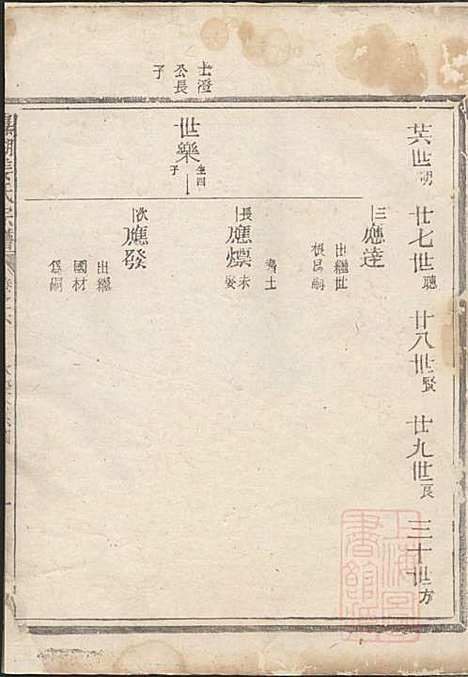 士澄
公長
子
世明 廿七世聰 廿八世賢 廿九世良 三十世方
世樂 生四子
三 應達
出繼世
根昌嗣
長 應熉
未娶
次 應發
出繼
國材
爲嗣
上海圖書館藏